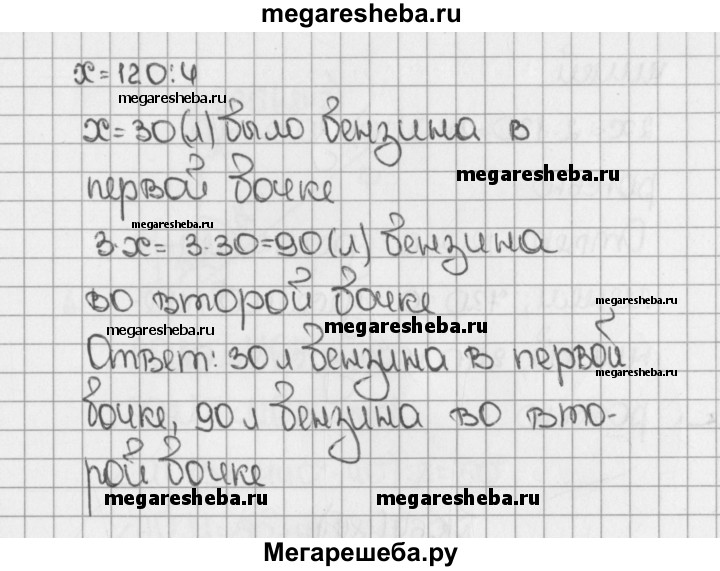 megaresheba.ru
x=120:4
megaresheba.ru
x=30(л) было бензина в
megaresheba.ru
первой бочке
megaresheba.ru
3·x=3·30=90(л) бензина
во второй бочке
megaresheba.ru
megaresheba.ru
megaresheba.ru
Ответ: 30 л бензина в первой
megaresheba.ru
бочке, 90 л бензина во вто-
рой бочке
megaresheba.ru
megaresheba.ru
Мегарешеба.ру